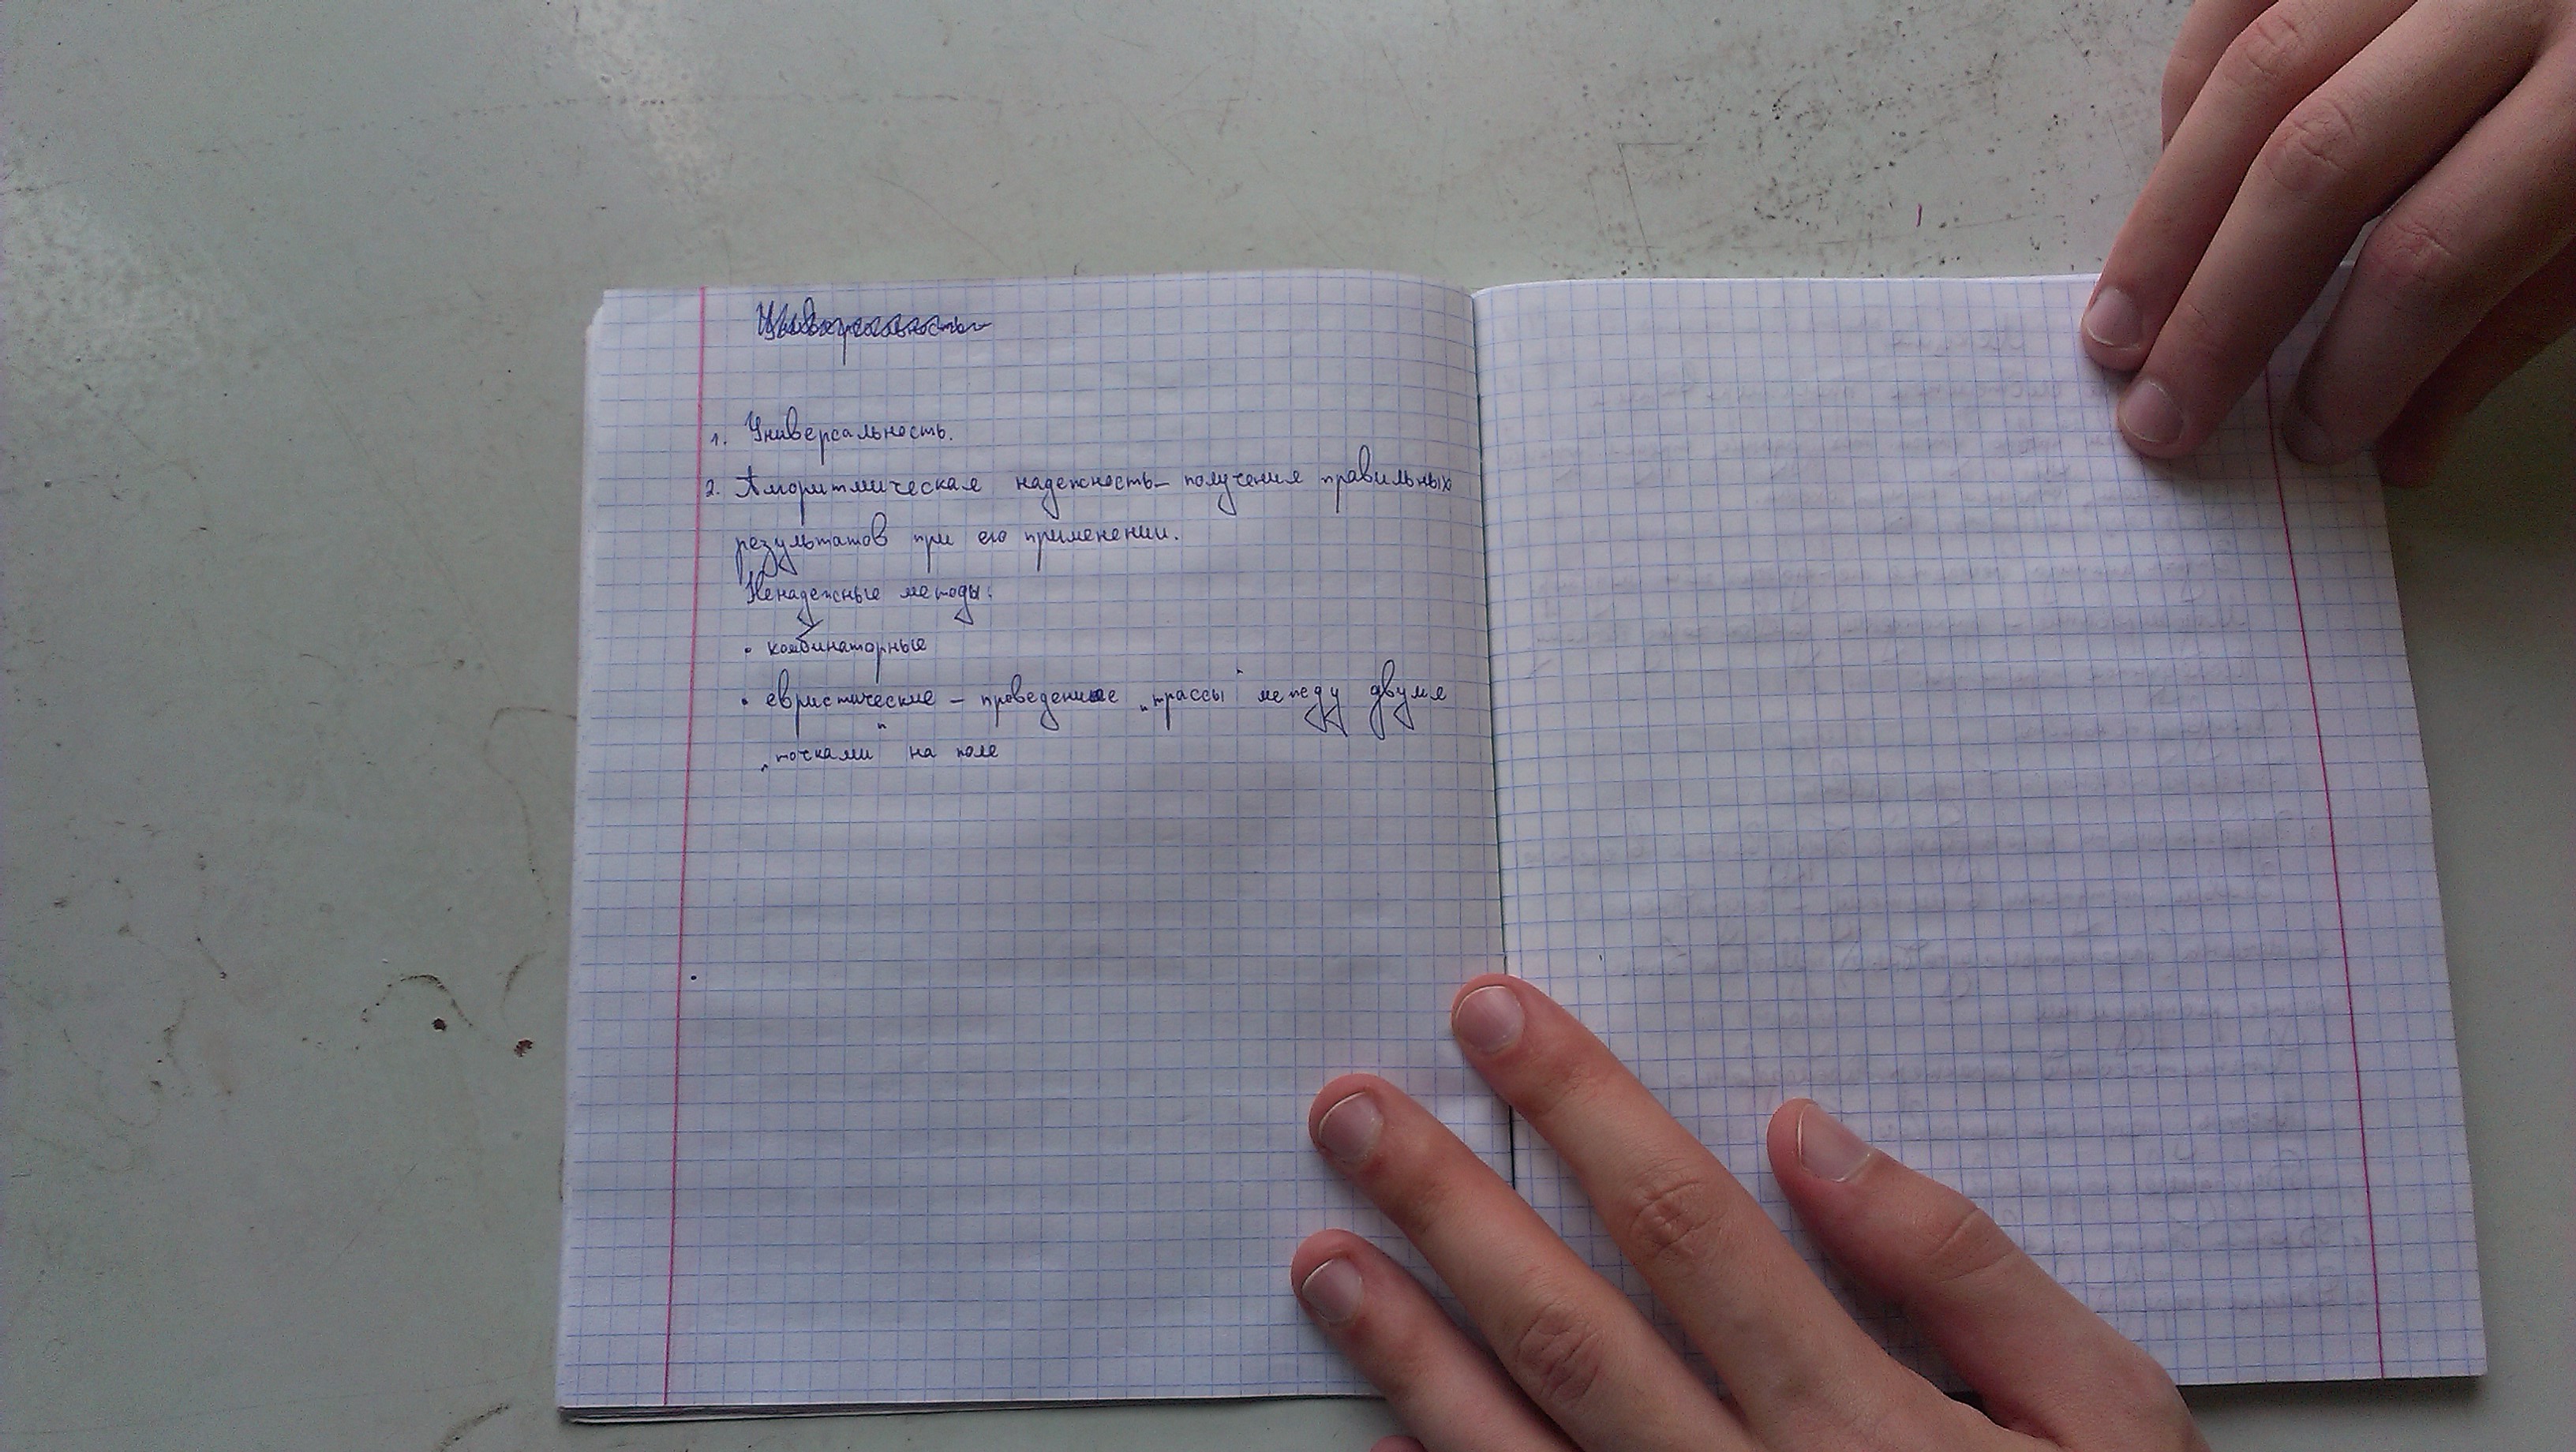 Универсальность
1. Универсальность.
2. Алгоритмическая надежность – получения правильных
результатов при его применении.
Ненадежные методы:
• комбинаторные
• евристические – проведение „трассы" между двумя
„точками" на поле